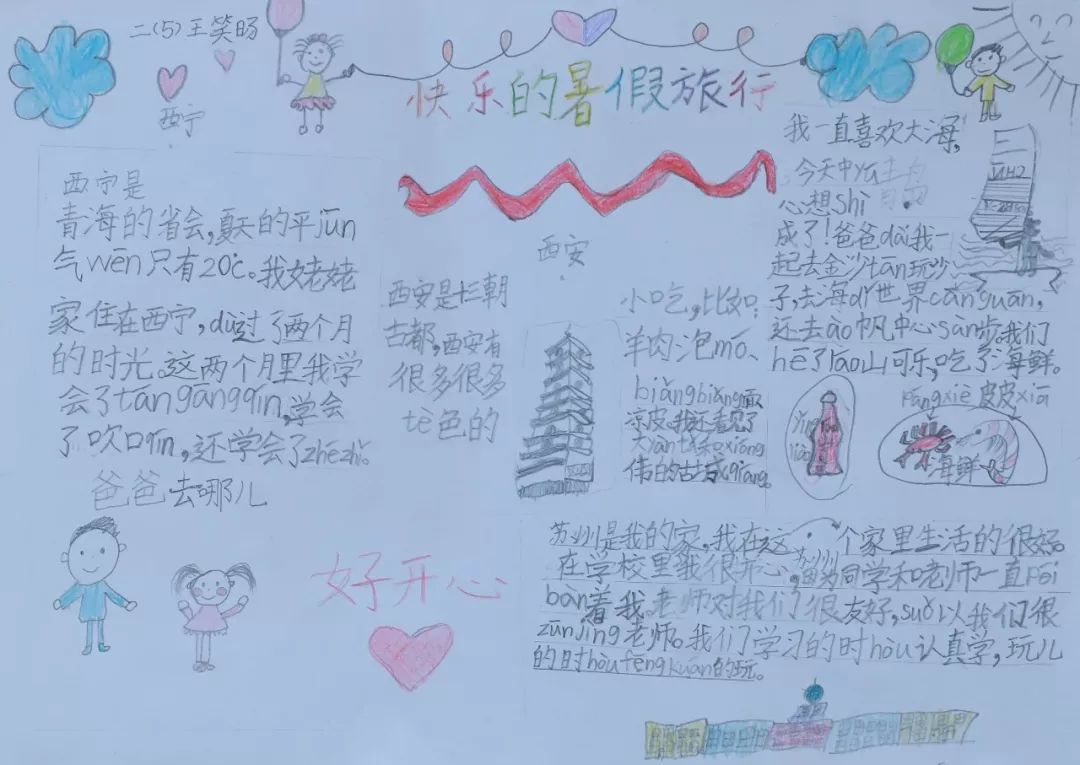 二(5)王笑旸
快乐的暑假旅行
西宁
西宁是
青海的省会,夏天的平jūn
气wēn只有20℃。我姥姥
家住在西宁,dù过了两个月
的时光。这两个月里我学
会了tángāngqín,学会
了吹口qín,还学会了zhézhǐ。
爸爸去哪儿
好开心
西安
西安是十三朝
古都,西安有
很多很多
tè色的
小吃,比如:
羊肉泡mó、
biángbiáng面
凉皮。我还看见了
大yàn tǎ和xióng
伟的古城qiáng。
我一直喜欢大海,
今天中
心想shì
成了!爸爸dài我一
起去金沙tān玩沙
子,去海dǐ世界cānguān,
还去ào帆中心sàn步。我们
hē了láo山可乐,吃了海鲜。
pángxiè 皮皮xiā
yǐn
liào
海鲜
苏州是我的家,我在这个家里生活的很好。
在学校里我很开心,因为同学和老师一直péi
bàn着我。老师对我们很友好,suǒ以我们很
zūnjìng老师。我们学习的时hòu认真学,玩儿
的时hòu fēngkuáng的玩。